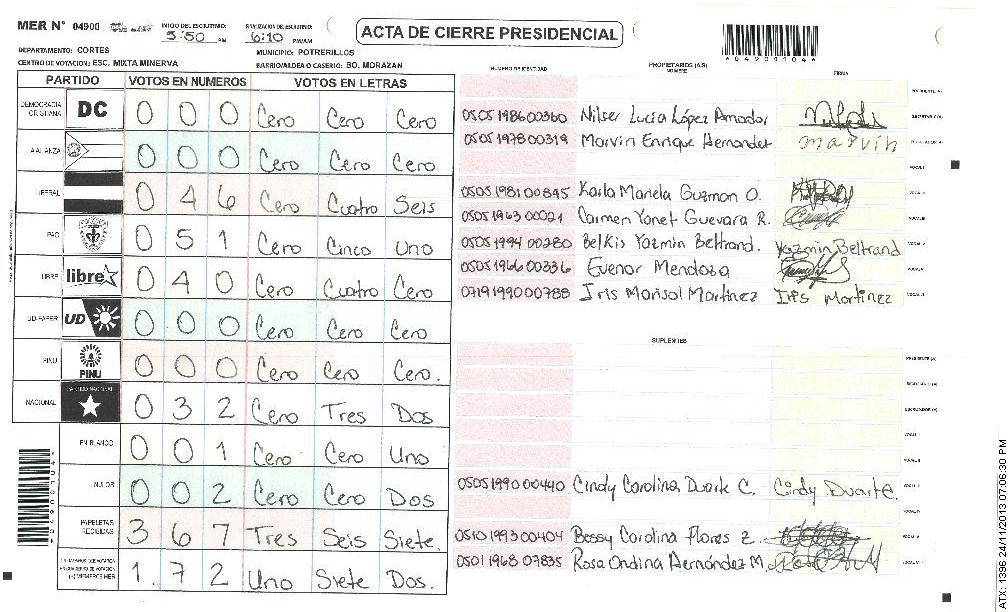 MER N° 04900 INICIO DEL ESCRUTINIO: 5:50 PM FINALIZACION DEL ESCRUTINIO: 6:10 PM/AM
ACTA DE CIERRE PRESIDENCIAL
*04900104*
DEPARTAMENTO: CORTES MUNICIPIO: POTRERILLOS
CENTRO DE VOTACION: ESC. MIXTA MINERVA BARRIO/ALDEA O CASERIO: BO. MORAZAN
PARTIDO VOTOS EN NUMEROS VOTOS EN LETRAS
DEMOCRACIA CRISTIANA DC 0 0 0 Cero Cero Cero
ALIANZA 0 0 0 Cero Cero Cero
LIBERAL 0 4 6 Cero Cuatro Seis
PAC 0 5 1 Cero Cinco Uno
LIBRE libre 0 4 0 Cero Cuatro Cero
UD-FAPER UD 0 0 0 Cero Cero Cero
PINU PINU 0 0 0 Cero Cero Cero.
NACIONAL PARTIDO NACIONAL 0 3 2 Cero Tres Dos
EN BLANCO 0 0 1 Cero Cero Uno
NULOS 0 0 2 Cero Cero Dos
PAPELETAS RECIBIDAS 3 6 7 Tres Seis Siete.
1. 7 2 Uno Siete Dos.
NUMERO DE IDENTIDAD PROPIETARIOS (AS) NOMBRE FIRMA
PRESIDENTE (A)
0505198600360 Nilser Lucia López Amador SECRETARIO (A)
0505197800319 Marvin Enrique Hernandez marvin ESCRUTADOR (A)
VOCAL I
0505198100845 Karla Mariela Guzman O. VOCAL II
0505196300021 Carmen Yanet Guevara R. VOCAL III
0505199400280 Belkis Yazmin Beltrand. Yazmin Beltrand VOCAL IV
0505196600336 Euenor Mendoza VOCAL V
0719199000788 Iris Marisol Martinez Iris Martinez VOCAL VI
SUPLENTES
PRESIDENTE (A)
SECRETARIO (A)
ESCRUTADOR (A)
VOCAL I
VOCAL II
0505199000440 Cindy Carolina Duarte C. Cindy Duarte C. VOCAL III
VOCAL IV
0510199300404 Bessy Carolina Flores Z. VOCAL V
0501196807835 Rosa Ondina Hernández M. VOCAL VI
*04900104*
ATX: 1396 24/11/2013 07:06:30 PM